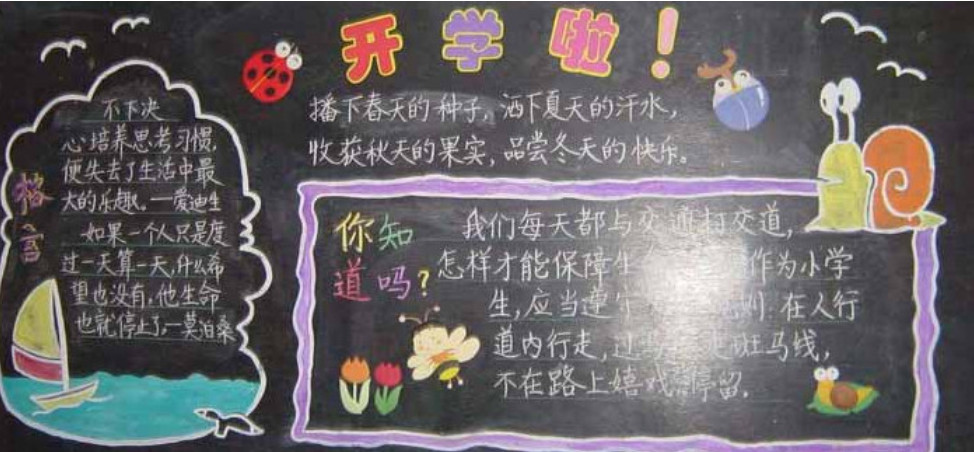 开学啦！
播下春天的种子，洒下夏天的汗水，
收获秋天的果实，品尝冬天的快乐。
格言
不下决
心培养思考习惯，
便失去了生活中最
大的乐趣。一爱迪生
如果一个人只是度
过一天算一天，什么希
望也没有，他生命
也就停止了，一莫泊桑
你知
道吗？
我们每天都与交通打交道，
怎样才能保障生 作为小学
生，应当遵守 则：在人行
道内行走，过 走斑马线，
不在路上嬉戏 停留。